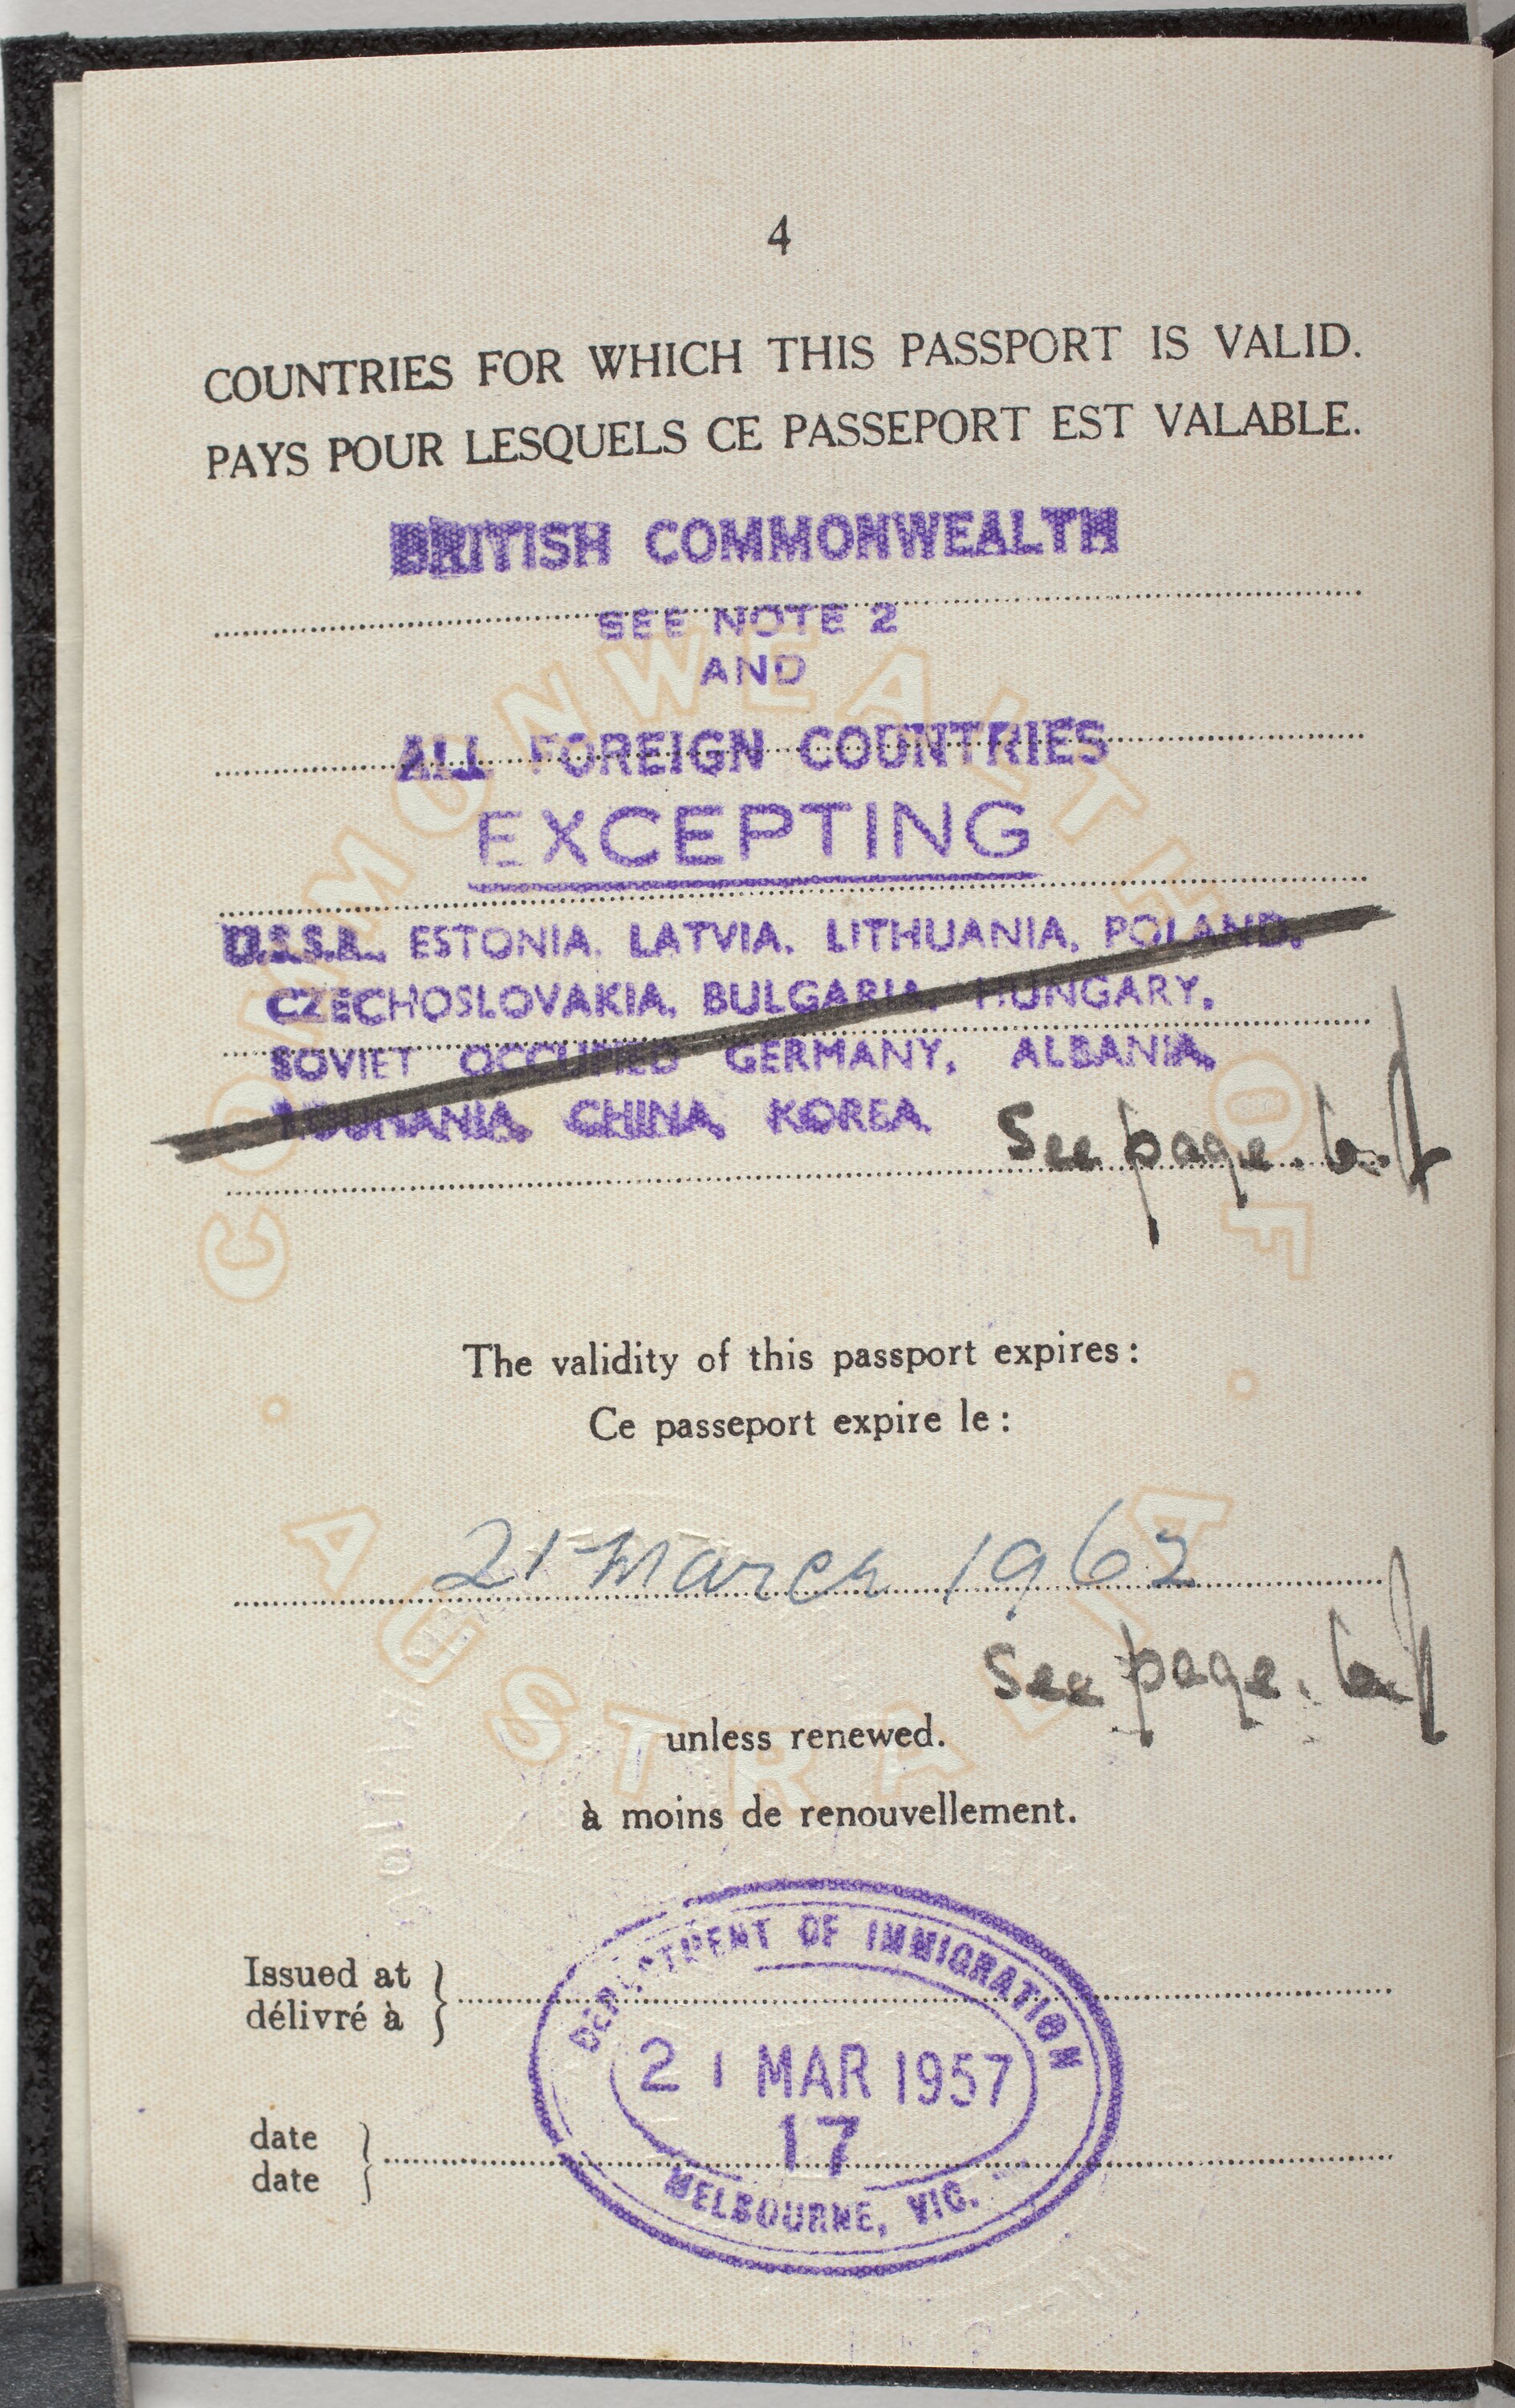 4
COUNTRIES FOR WHICH THIS PASSPORT IS VALID.
PAYS POUR LESQUELS CE PASSEPORT EST VALABLE.
BRITISH COMMONWEALTH
SEE NOTE 2
AND
ALL FOREIGN COUNTRIES
EXCEPTING
U.S.S.R. ESTONIA. LATVIA. LITHUANIA. POLAND.
CZECHOSLOVAKIA. BULGARIA. HUNGARY.
SOVIET OCCUPIED GERMANY, ALBANIA,
ROUMANIA, CHINA, KOREA.
See page.
The validity of this passport expires:
Ce passeport expire le:
21 March 1962
See page.
unless renewed.
à moins de renouvellement.
COMMONWEALTH OF
AUSTRALIA
Issued at
délivré à
DEPARTMENT OF IMMIGRATION
21 MAR 1957
17
MELBOURNE, VIC.
date
date